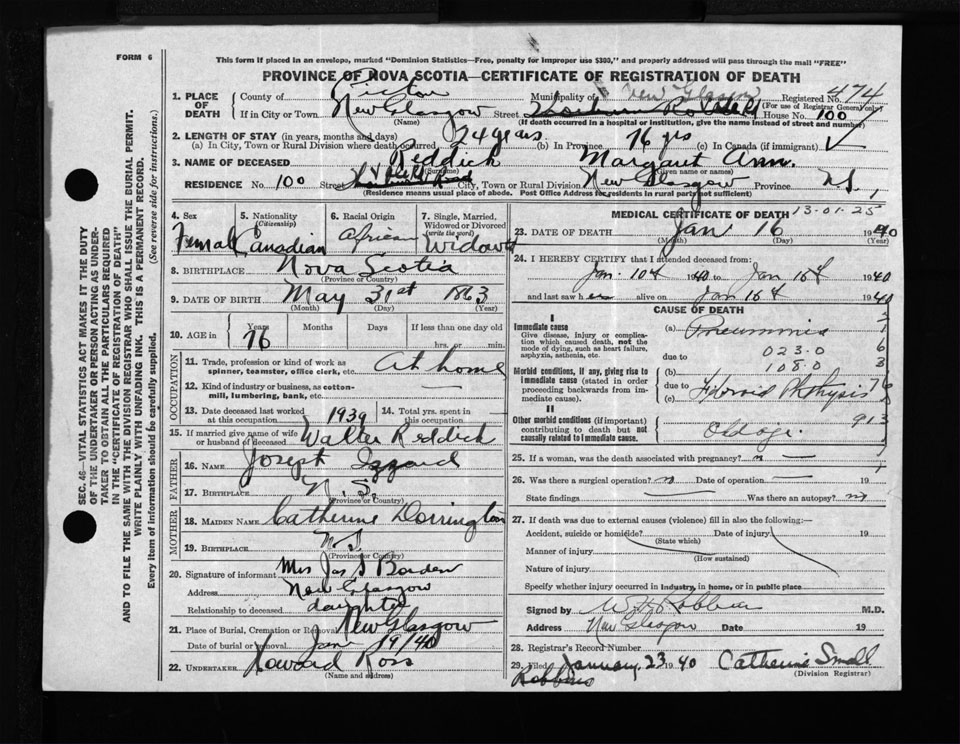 FORM 6
This form if placed in an envelope, marked "Dominion Statistics—Free, penalty for improper use $300," and properly addressed will pass through the mail "FREE"
PROVINCE OF NOVA SCOTIA—CERTIFICATE OF REGISTRATION OF DEATH
1. PLACE OF DEATH County of Pictou Municipality of New Glasgow Registered No. 474
(For use of Registrar General only)
If in City or Town New Glasgow Street House No. 100
(Name) (If death occurred in a hospital or institution, give the name instead of street and number)
2. LENGTH OF STAY (in years, months and days)
(a) In City, Town or Rural Division where death occurred 74 years (b) In Province 76 yrs (c) In Canada (if immigrant)
3. NAME OF DECEASED Reddick Margaret Ann.
(Surname) (Given name or names)
RESIDENCE No. 100 Street City, Town or Rural Division New Glasgow Province N.S.
(Residence means usual place of abode. Post Office Address for residents in rural parts not sufficient)
4. Sex 5. Nationality (Citizenship) 6. Racial Origin 7. Single, Married, Widowed or Divorced (write the word)
Female Canadian African Widowed
8. BIRTHPLACE Nova Scotia
(Province or Country)
9. DATE OF BIRTH May 31st 1863
(Month) (Day) (Year)
10. AGE in Years Months Days If less than one day old
76 hrs. or min.
OCCUPATION
11. Trade, profession or kind of work as spinner, teamster, office clerk, etc. At home
12. Kind of industry or business, as cotton-mill, lumbering, bank, etc. —
13. Date deceased last worked at this occupation 1939 14. Total yrs. spent in this occupation —
15. If married give name of wife or husband of deceased Walter Reddick
FATHER
16. NAME Joseph Izzard
17. BIRTHPLACE N. S.
(Province or Country)
MOTHER
18. MAIDEN NAME Catherine Dorrington
19. BIRTHPLACE N.S
(Province or Country)
20. Signature of informant Mrs Jas S Borden
Address New Glasgow
Relationship to deceased daughter
21. Place of Burial, Cremation or Removal New Glasgow
Date of burial or removal Jan 19/40
22. UNDERTAKER Howard Ross
(Name and address)
MEDICAL CERTIFICATE OF DEATH 13-01-25
23. DATE OF DEATH Jan 16 1940
(Month) (Day) (Year)
24. I HEREBY CERTIFY that I attended deceased from:
Jan. 10th 1940 to Jan 16th 1940
and last saw her alive on Jan 16th 1940
CAUSE OF DEATH
I
Immediate cause
Give disease, injury or complication which caused death, not the mode of dying, such as heart failure, asphyxia, asthenia, etc.
(a) Pneumonia
due to 023.0
(b) 108.0
Morbid conditions, if any, giving rise to immediate cause (stated in order proceeding backwards from immediate cause).
due to
(c) Fibroid Phthysis
II
Other morbid conditions (if important) contributing to death but not causally related to immediate cause.
Old age.
25. If a woman, was the death associated with pregnancy?
26. Was there a surgical operation? no Date of operation — 19
State findings Was there an autopsy? no
27. If death was due to external causes (violence) fill in also the following:—
Accident, suicide or homicide? Date of injury 19
(State which)
Manner of injury
(How sustained)
Nature of injury
Specify whether injury occurred in industry, in home, or in public place
Signed by W H Robbins M.D.
Address New Glasgow Date 19
28. Registrar's Record Number
29. Filed January 23 1940 Catherine Small
Robbins (Division Registrar)
SEC. 46—VITAL STATISTICS ACT MAKES IT THE DUTY
OF THE UNDERTAKER OR PERSON ACTING AS UNDER-
TAKER TO OBTAIN ALL THE PARTICULARS REQUIRED
IN THE "CERTIFICATE OF REGISTRATION OF DEATH"
AND TO FILE THE SAME WITH THE DIVISION REGISTRAR WHO SHALL ISSUE THE BURIAL PERMIT.
WRITE PLAINLY WITH UNFADING INK. THIS IS A PERMANENT RECORD.
Every item of information should be carefully supplied. (See reverse side for instructions.)